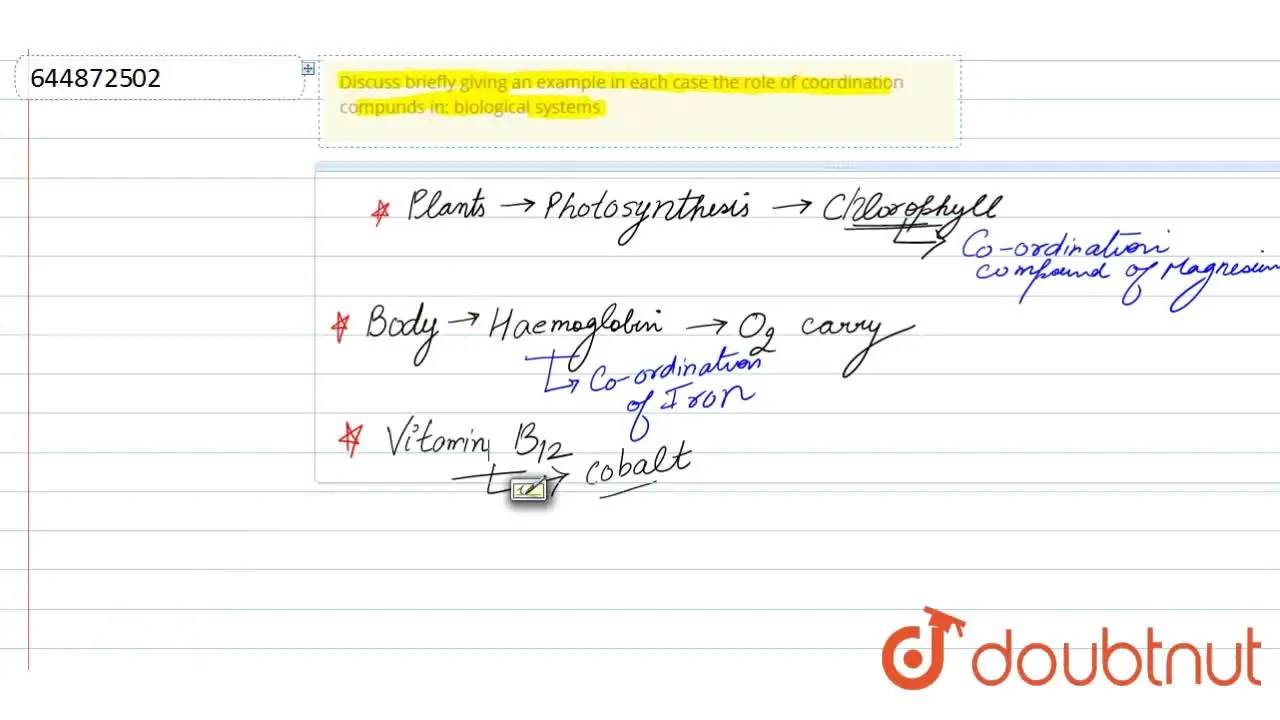 644872502
Discuss briefly giving an example in each case the role of coordination
compunds in: biological systems
Plants → Photosynthesis → Chlorophyll
Co-ordination
compound of Magnesium
Body → Haemoglobin → O2 carry
Co-ordination
of Iron
Vitamin B12
cobalt
doubtnut